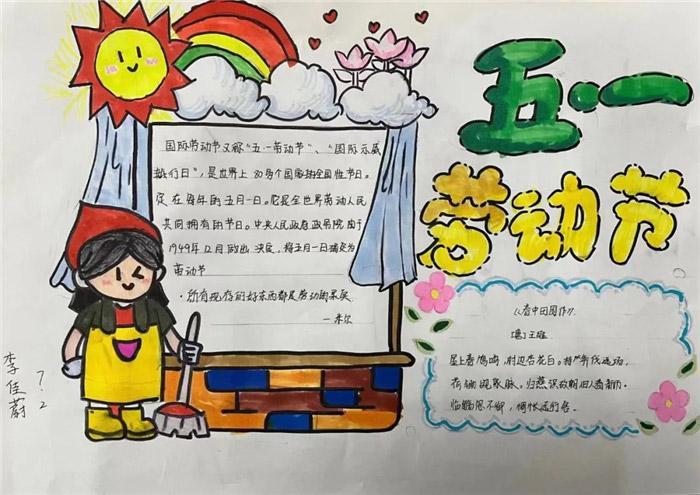 五·一
劳动节
国际劳动节又称“五·一劳动节”、“国际示威
游行日”,是世界上80多个国家的全国性节日。
定在每年的五月一日。它是全世界劳动人民
共同拥有的节日。中央人民政府政务院由于
1949年12月做出决定,将五月一日确定为
劳动节
·所有现存的好东西都是劳动的果实
—米尔
《春中田园作》
王维
屋上春鸠鸣,村边杏花白。持斧伐远扬,
荷锄觇泉脉。归燕识故巢旧人看新历。
临觞忽不御,惆怅远行客。
李佳蔚
7.2